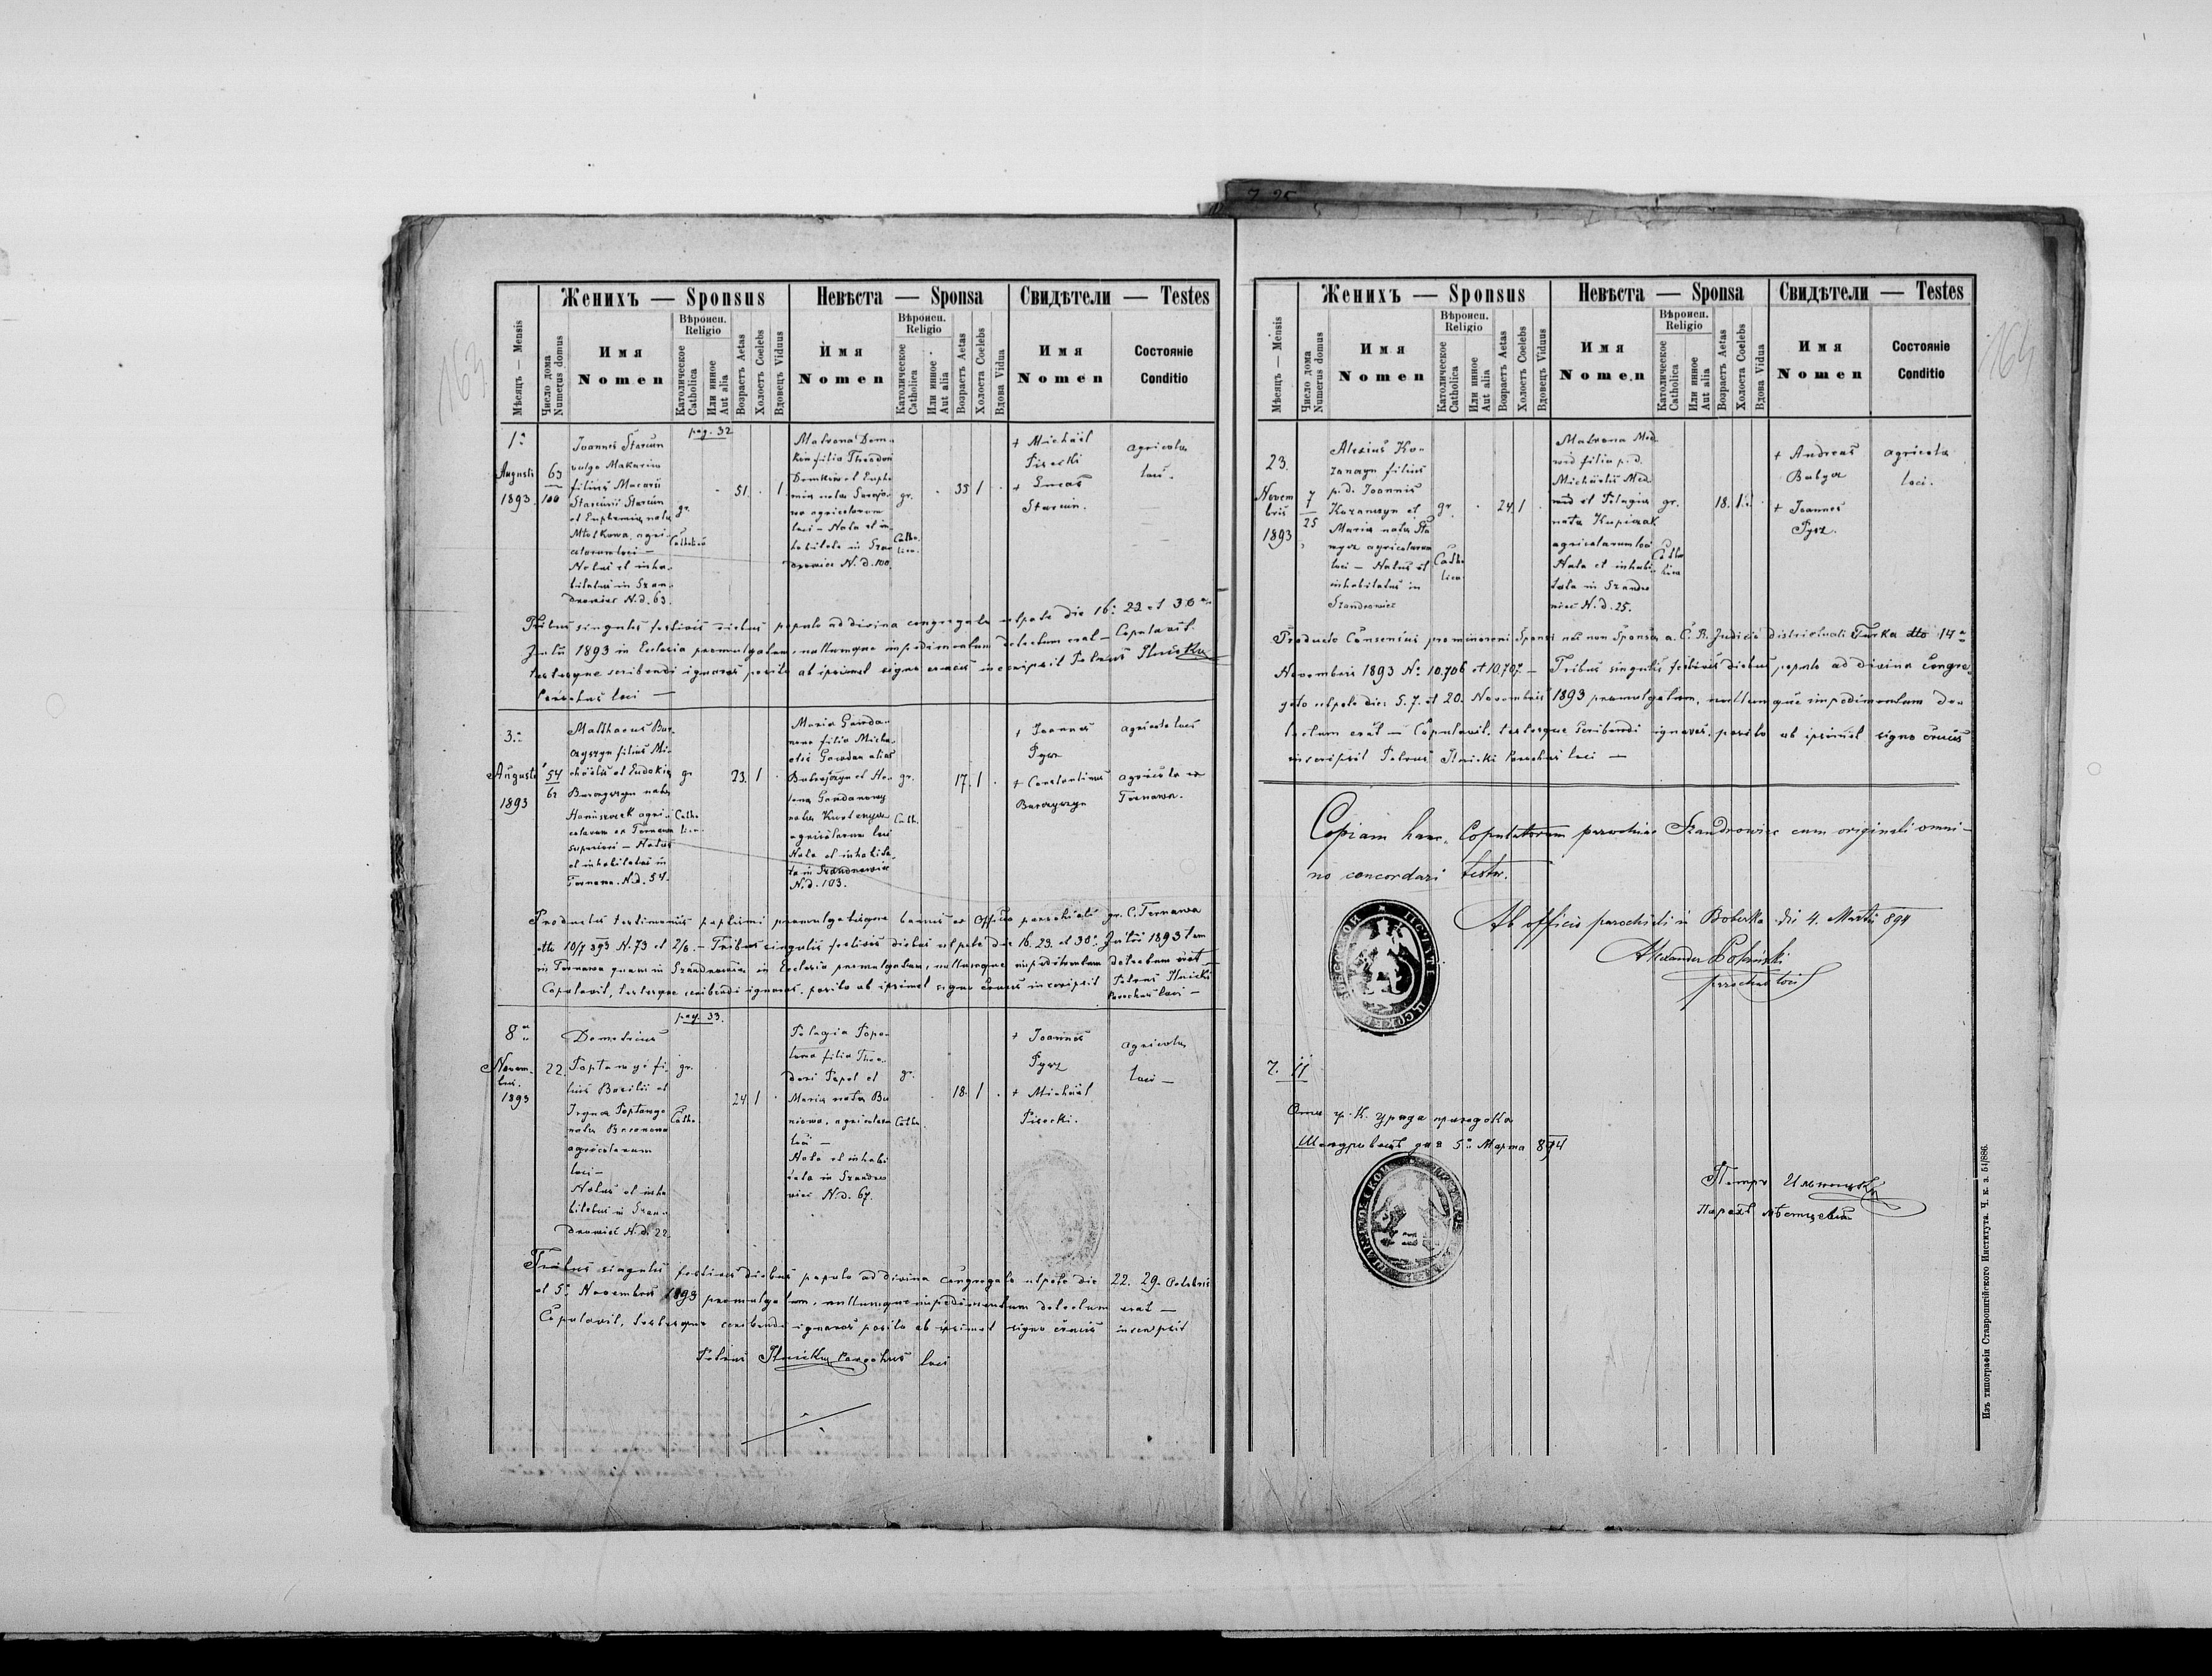 163
Мѣсяцъ — Mensis
Число дома
Numerus domus
Женихъ — Sponsus
Имя
Nomen
Вѣроисп.
Religio
Католическое
Catholica
Или инное
Aut alia
Возрастъ Aetas
Холостъ Coelebs
Вдовецъ Viduus
Невѣста — Sponsa
Имя
Nomen
Вѣроисп.
Religio
Католическое
Catholica
Или инное
Aut alia
Возрастъ Aetas
Холоста Coelebs
Вдова Vidua
Свидѣтели — Testes
Имя
Nomen
Состояніе
Conditio
pag. 32
1a
Augusti
1893
63
100
Joannes Starcun
vulgo Makariw
filius Macarii
Starcun
et Euphemia nata
agri-
colarum loci —
Natus et inha-
bitatus in Szan-
drowiec N.d. 63.
gr.
Catholica
51
1
Matrona Dem-
kiw filia Theodori
Demkiw et Euphe-
mia nata
agricolarum
loci — Nata et in-
habitata in Szan-
drowiec N.d. 100
gr.
Catho-
lica
35 1
+ Michael
Pisecki
+ Lucas
Starcun.
agricola
loci.
Tribus singulis festivis diebus populo ad divina congregato utpote die 16. 23 et 30a
Julii 1893 in Ecclesia promulgatum, nullumque impedimentum detectum erat — Copulavit
testesque scribendi ignaros posito ab ipsimet signo crucis inscripsit Petrus Ilnicki
Parochus loci —
3a
Augusti
1893
54
62
Matthaeus Bur-
czyszyn filius Mi-
chaelis et Eudokia
Burczyszyn nata
Haniszczak agri-
colarum ex Tarnawa
superiori — Natus
et inhabitatus in
Tarnawa N.d. 54.
gr
Catho-
lica
23 1
Maria Gawda-
nowa filia Micha-
elis Gawdan alias
et He-
lena Gawdanowy
nata
agricolarum loci
Nata et inhabita-
ta in Szandrowiec
N.d. 103.
gr.
Cath.
17 1
+ Joannes
Pysz
+ Constantinus
Burczyszyn
agricola loci
agricola ex
Tarnawa.
Productis testimoniis baptismi promulgatisque bannis ex Officio parochiali gr. C. Tarnawa
dtto 10/7 893 N. 73 et 2/8. — Tribus singulis festivis diebus utpote die 16. 23. et 30a Julii 1893 tam
in Tarnawa quam in Szandrowiec in Ecclesia promulgatum, nullumque impedimentum detectum erat —
Copulavit, testesque scribendi ignaros, posito ab ipsimet signo crucis inscripsit Petrus Ilnicki
Parochus loci —
pag. 33.
8a
Novem-
bris.
1893
22.
Demetrius
fi-
lius Basilii et
Iryna
nata
agricolarum
loci —
Natus et inha-
bitatus in Szan-
drowiec N.d. 22
gr.
Catho.
24 1
Pelagia Popo-
filia Theo-
dori Popel et
Maria nata
agricolarum
loci —
Nata et inhabi-
tata in Szandro-
wiec N.d. 67.
gr.
Catho.
18 1
+ Joannes
Pysz
+ Michael
Pisecki.
agricola
loci —
Tribus singulis festivis diebus populo ad divina congregato utpote die 22. 29. Octobris
et 5a Novembris 1893 promulgatum, nullumque impedimentum detectum erat —
Copulavit, testesque scribendi ignaros posito ab ipsimet signo crucis inscripsit
Petrus Ilnicki Parochus loci
164
Мѣсяцъ — Mensis
Число дома
Numerus domus
Женихъ — Sponsus
Имя
Nomen
Вѣроисп.
Religio
Католическое
Catholica
Или инное
Aut alia
Возрастъ Aetas
Холостъ Coelebs
Вдовецъ Viduus
Невѣста — Sponsa
Имя
Nomen
Вѣроисп.
Religio
Католическое
Catholica
Или инное
Aut alia
Возрастъ Aetas
Холоста Coelebs
Вдова Vidua
Свидѣтели — Testes
Имя
Nomen
Состояніе
Conditio
23.
Novem
bris
1893
7
25
Alexius Ko-
zanczyn filius
p.d. Joannis
Kozanczyn et
Maria nata
agricolarum
loci — Natus et
inhabitatus in
Szandrowiec
gr.
Catho
lica
24 1
Matrona Med-
wid filia p.d.
Michaelis Med-
wid et Pelagia
nata Kupiczak
agricolarum loci
Nata et inhabi-
tata in Szandro
wiec N.d. 25.
gr.
Catho
lica
18 1
+ Andreas
Bulga
+ Joannes
Pysz.
agricola
loci.
Producto Consensus pro minoreni Sponsi nec non Sponsa a C. R. Judicio districtuali Turka dtto 14a
Novembris 1893 No 10.706 et 10.707. — Tribus singulis festivis diebus populo ad divina congre-
gato utpote die: 5. 7. et 20. Novembris 1893 promulgatum, nullumque impedimentum de-
tectum erat — Copulavit, testesque scribendi ignaros, posito ab ipsimet signo crucis
inscripsit Petrus Ilnicki Parochus loci —
Copiam hanc Copulatorum parochiae Szandrowiec cum originali omni-
no concordari testor.
Ab officio parochiali in Boberka die 4. Martii 894
Alexander
parochus loci
7. 11
Отъ гр. К. уряда приходского
Шандровець дня 5. Марта 894
Петро Ильницкій
Парохъ мѣстцевый
Изъ типографіи Ставропигійского Института. Ч. к. з. 51/886.